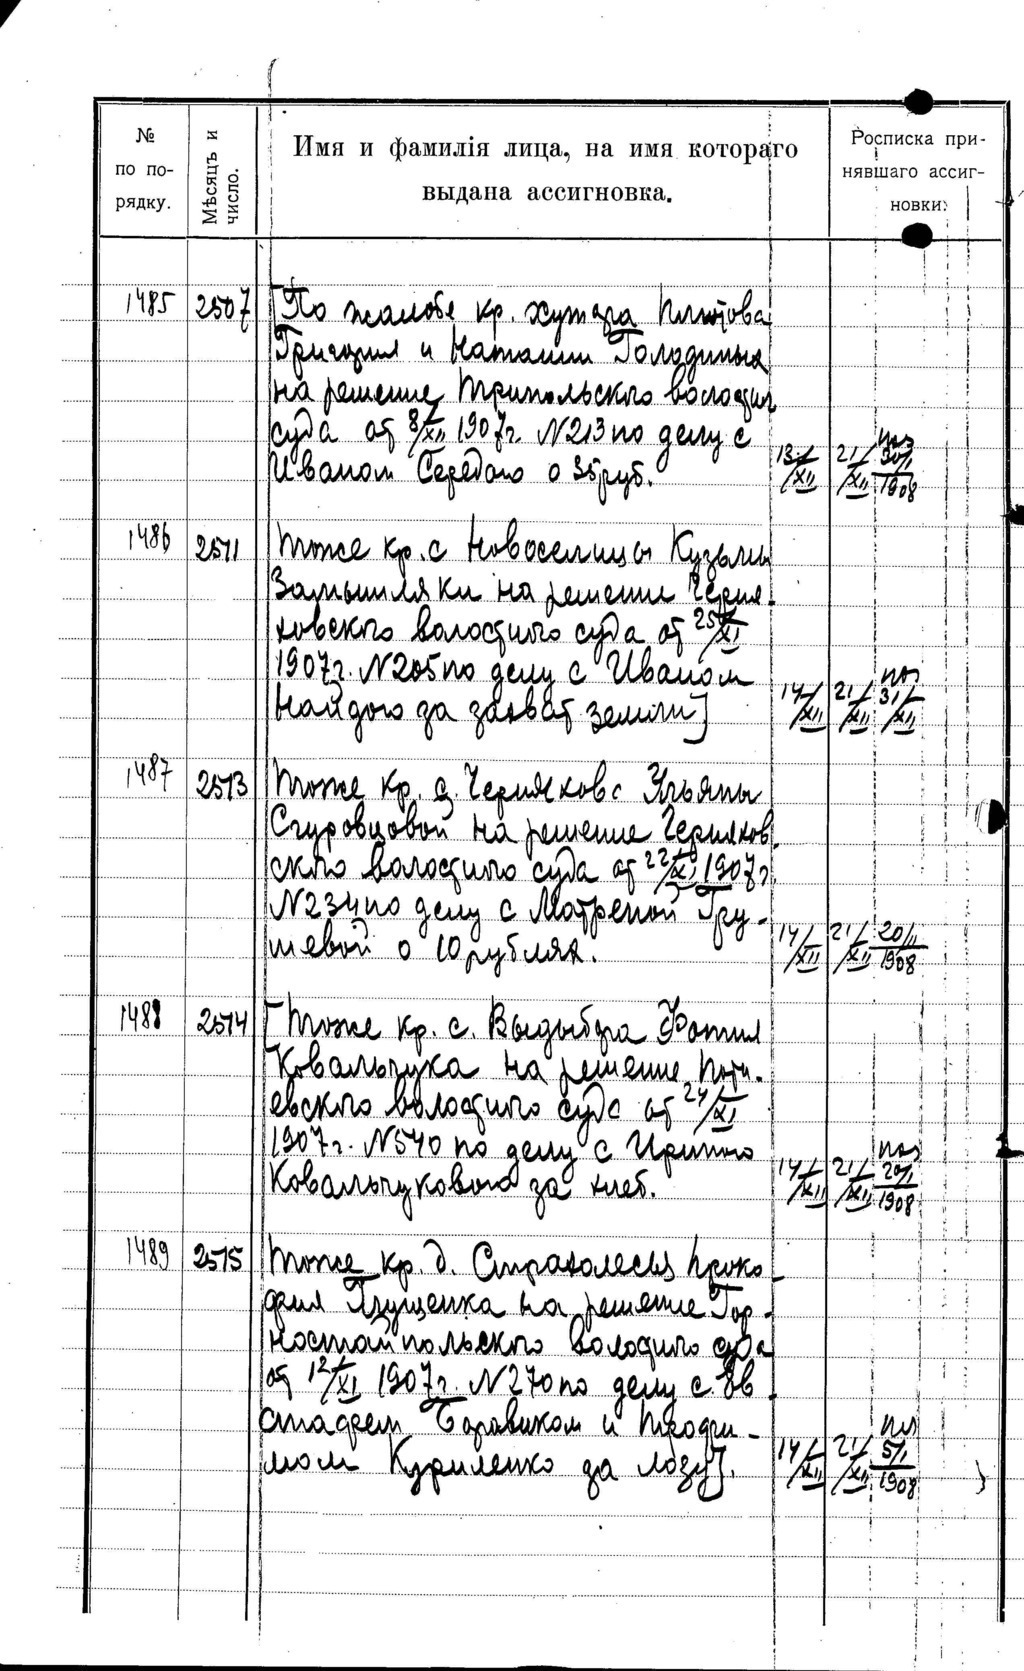 №
по по-
рядку.
Мѣсяцъ и
число.
Имя и фамилія лица, на имя котораго
выдана ассигновка.
Росписка при-
нявшаго ассиг-
новки:
1485 2507 [По жалобе кр. хутора
Григория и Наталии Голодиных
на решение Трипольского волостн
суда от 8/XII 1907г. N213 по делу с
Иваном Середою о 35 руб. 13/XII 21/XII 30/I 1908
1486 2511 Тоже кр. с Новоселицы Кузьмы
Замышляки на решение Черня-
ховского волостного суда от 25/XI
1907г. N205 по делу с Иваном
Найдою за захват земли] 14/XII 21/XII 31/XII
1487 2513 Тоже кр. с. Черняхов Ульяны
Сгуровцовой на решение Черняхов
ского волостного суда от 22/XI 1907г
N234 по делу с Матреной Гру-
шевой о 10 рублях. 14/XII 21/XII 20/II 1908
1488 2514 [Тоже кр. с. Выдыбора Фотия
Ковальчука на решение Поти-
евского волостного суда от 24/XI
1907г. N540 по делу с Ириною
Ковальчуковою за хлеб. 14/XII 21/XII 20/I 1908
1489 2515 Тоже кр. д. Страхолесья Проко-
фия Глущенка на решение Гор-
ностайпольского волостного суда
от 12/XI 1907г. N270 по делу с Ев-
стафем Боровиком и Трофи-
мом Куриленко за лозу]. 14/XII 21/XII 5/I 1908